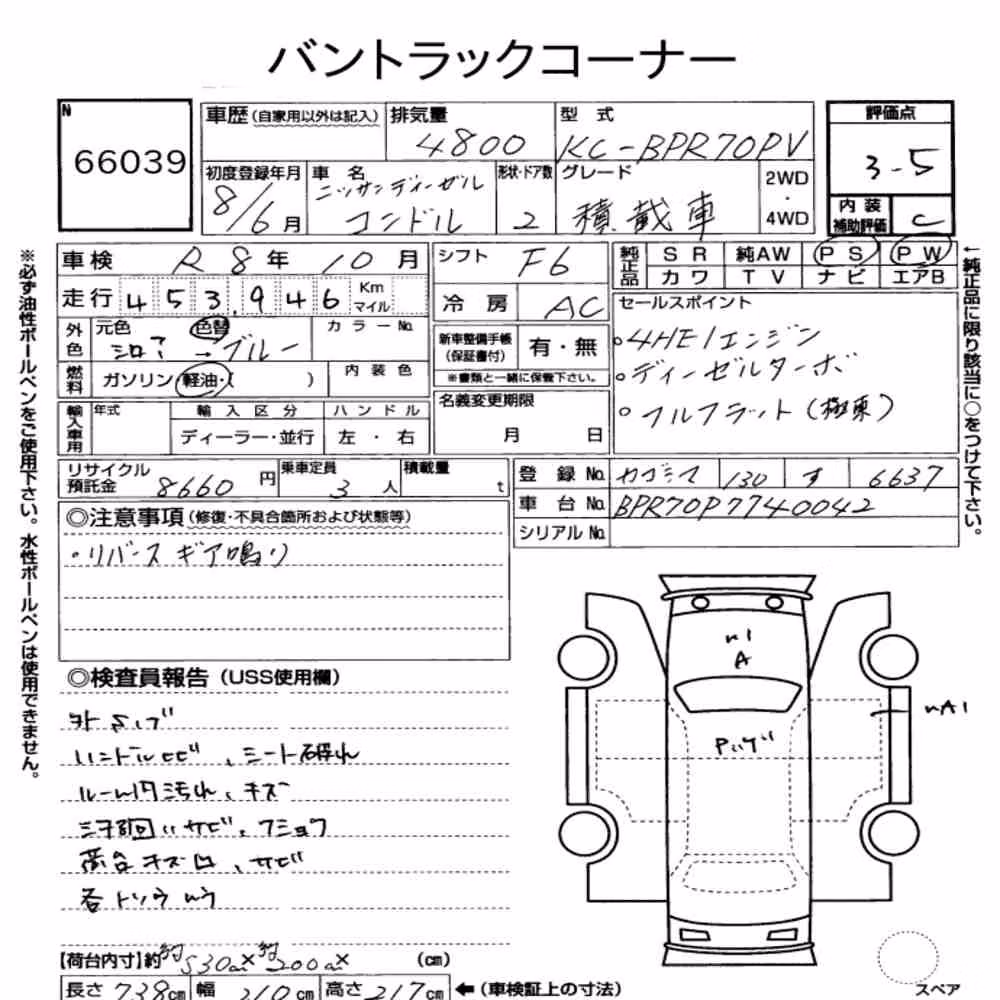 バントラックコーナー
N
66039
車歴(自家用以外は記入)
排気量
4800
型 式
KC-BPR70PV
評価点
3-5
初度登録年月
8/6月
車 名
ニッサンディーゼル
コンドル
形状・ドア数
2
グレード
積載車
2WD
・
4WD
内 装
補助評価
C
車検
R 8年 10月
シフト
F6
純正品
SR 純AW PS PW
カワ TV ナビ エアB
走行
453,946
Km
マイル
冷 房
AC
セールスポイント
・4HE1エンジン
。ディーゼルターボ
。フルフラット(極東)
外色
元色
色替
→ブルー
カラーNo.
新車整備手帳
(保証書付)
有・無
※書類と一緒に保管下さい。
燃料
ガソリン・軽油・( )
内 装 色
名義変更期限
月 日
輸入車用
年式
輸 入 区 分
ハ ン ド ル
ディーラー・並行
左 ・ 右
リサイクル
預託金
8660円
乗車定員
3人
積載量
t
登 録 No.
カゴシマ 130 す 6637
車 台 No.
BPR70P7740042
シリアル No.
◎注意事項(修復・不具合箇所および状態等)
・リバースギア鳴り
◎検査員報告(USS使用欄)
ハンドルヒビ、シート破れ
ルーム内汚れ、キズ
下回りサビ、フショク
荷台キズ凹、サビ
各トソウ
A
A1
【荷台内寸】約
530cm×約200cm×
(cm)
長さ 738cm
幅 210cm
高さ 217cm
←(車検証上の寸法)
スペア
※必ず油性ボールペンをご使用下さい。水性ボールペンは使用できません。
←純正品に限り該当に○をつけて下さい。